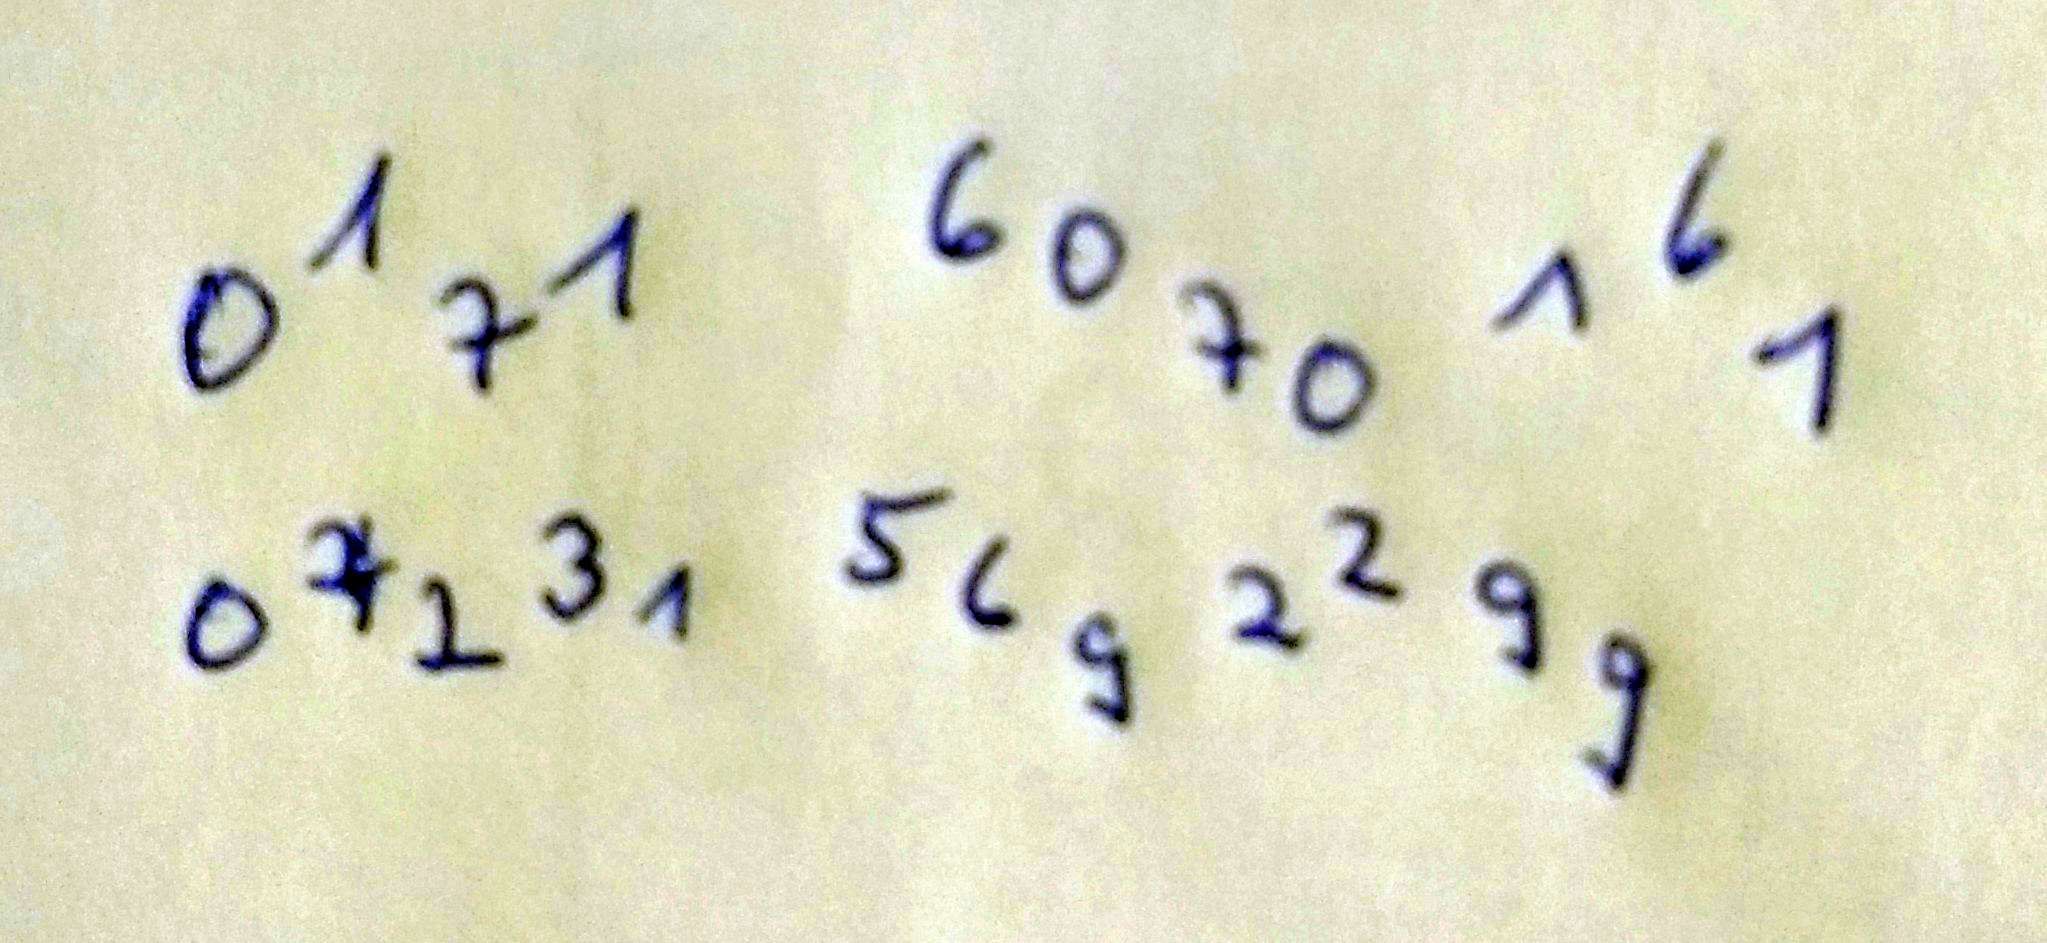 0171 6070 161
07231 569 2299